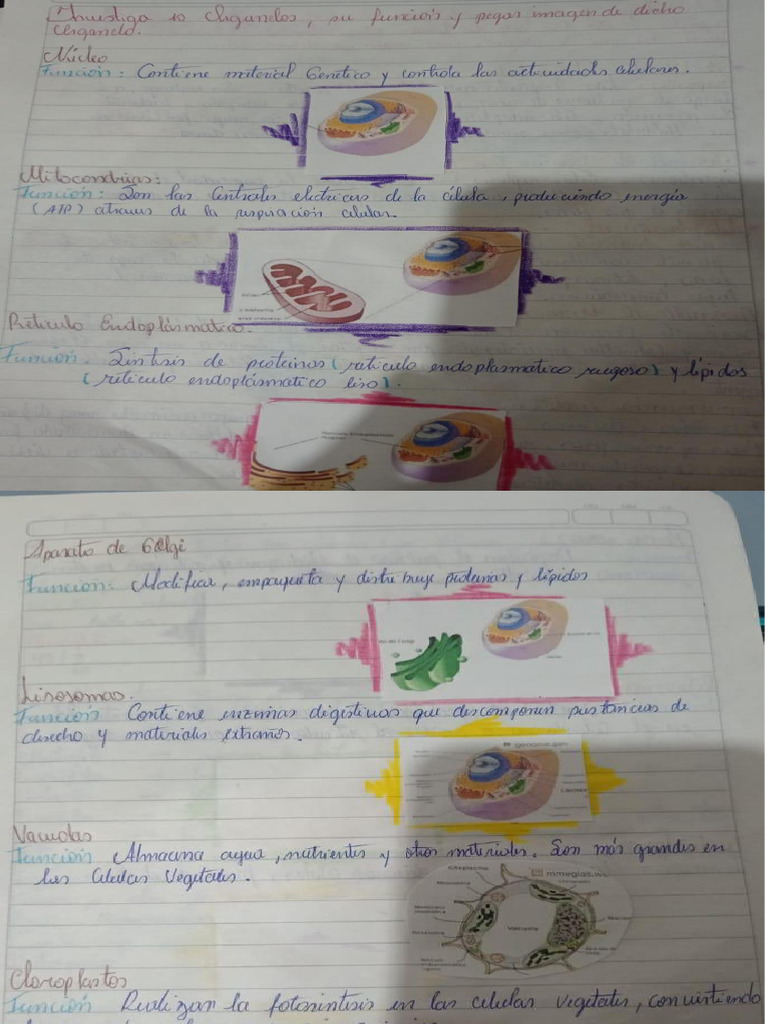 Investiga 10 Organelos, su función y pegar imagen de dicho
Organelo.
Núcleo
Función: Contiene material Genético y controla las actividades celulares.
Mitocondrias:
Función: Son las Centrales electricas de la célula, produciendo energía
(ATP) atraves de la respiración celular.
Reticulo Endoplásmatico.
Función. Sintesis de proteinas (reticulo endoplasmatico rugoso) y lípidos
(reticulo endoplasmatico liso).
Aparato de Golgi
Función: Modifica, empaqueta y distribuye proteinas y lípidos
Lisosomas.
Función Contiene enzimas digestivas que descomponen sustancias de
desecho y materiales extraños.
genome.gov
Vacuolas
Función Almacena agua, nutrientes y otros materiales. Son más grandes en
las Celulas Vegetales.
mmegias.we
Vacuola
Cloroplastos
Función Realizan la fotosintesis en las celulas vegetales, convirtiendo